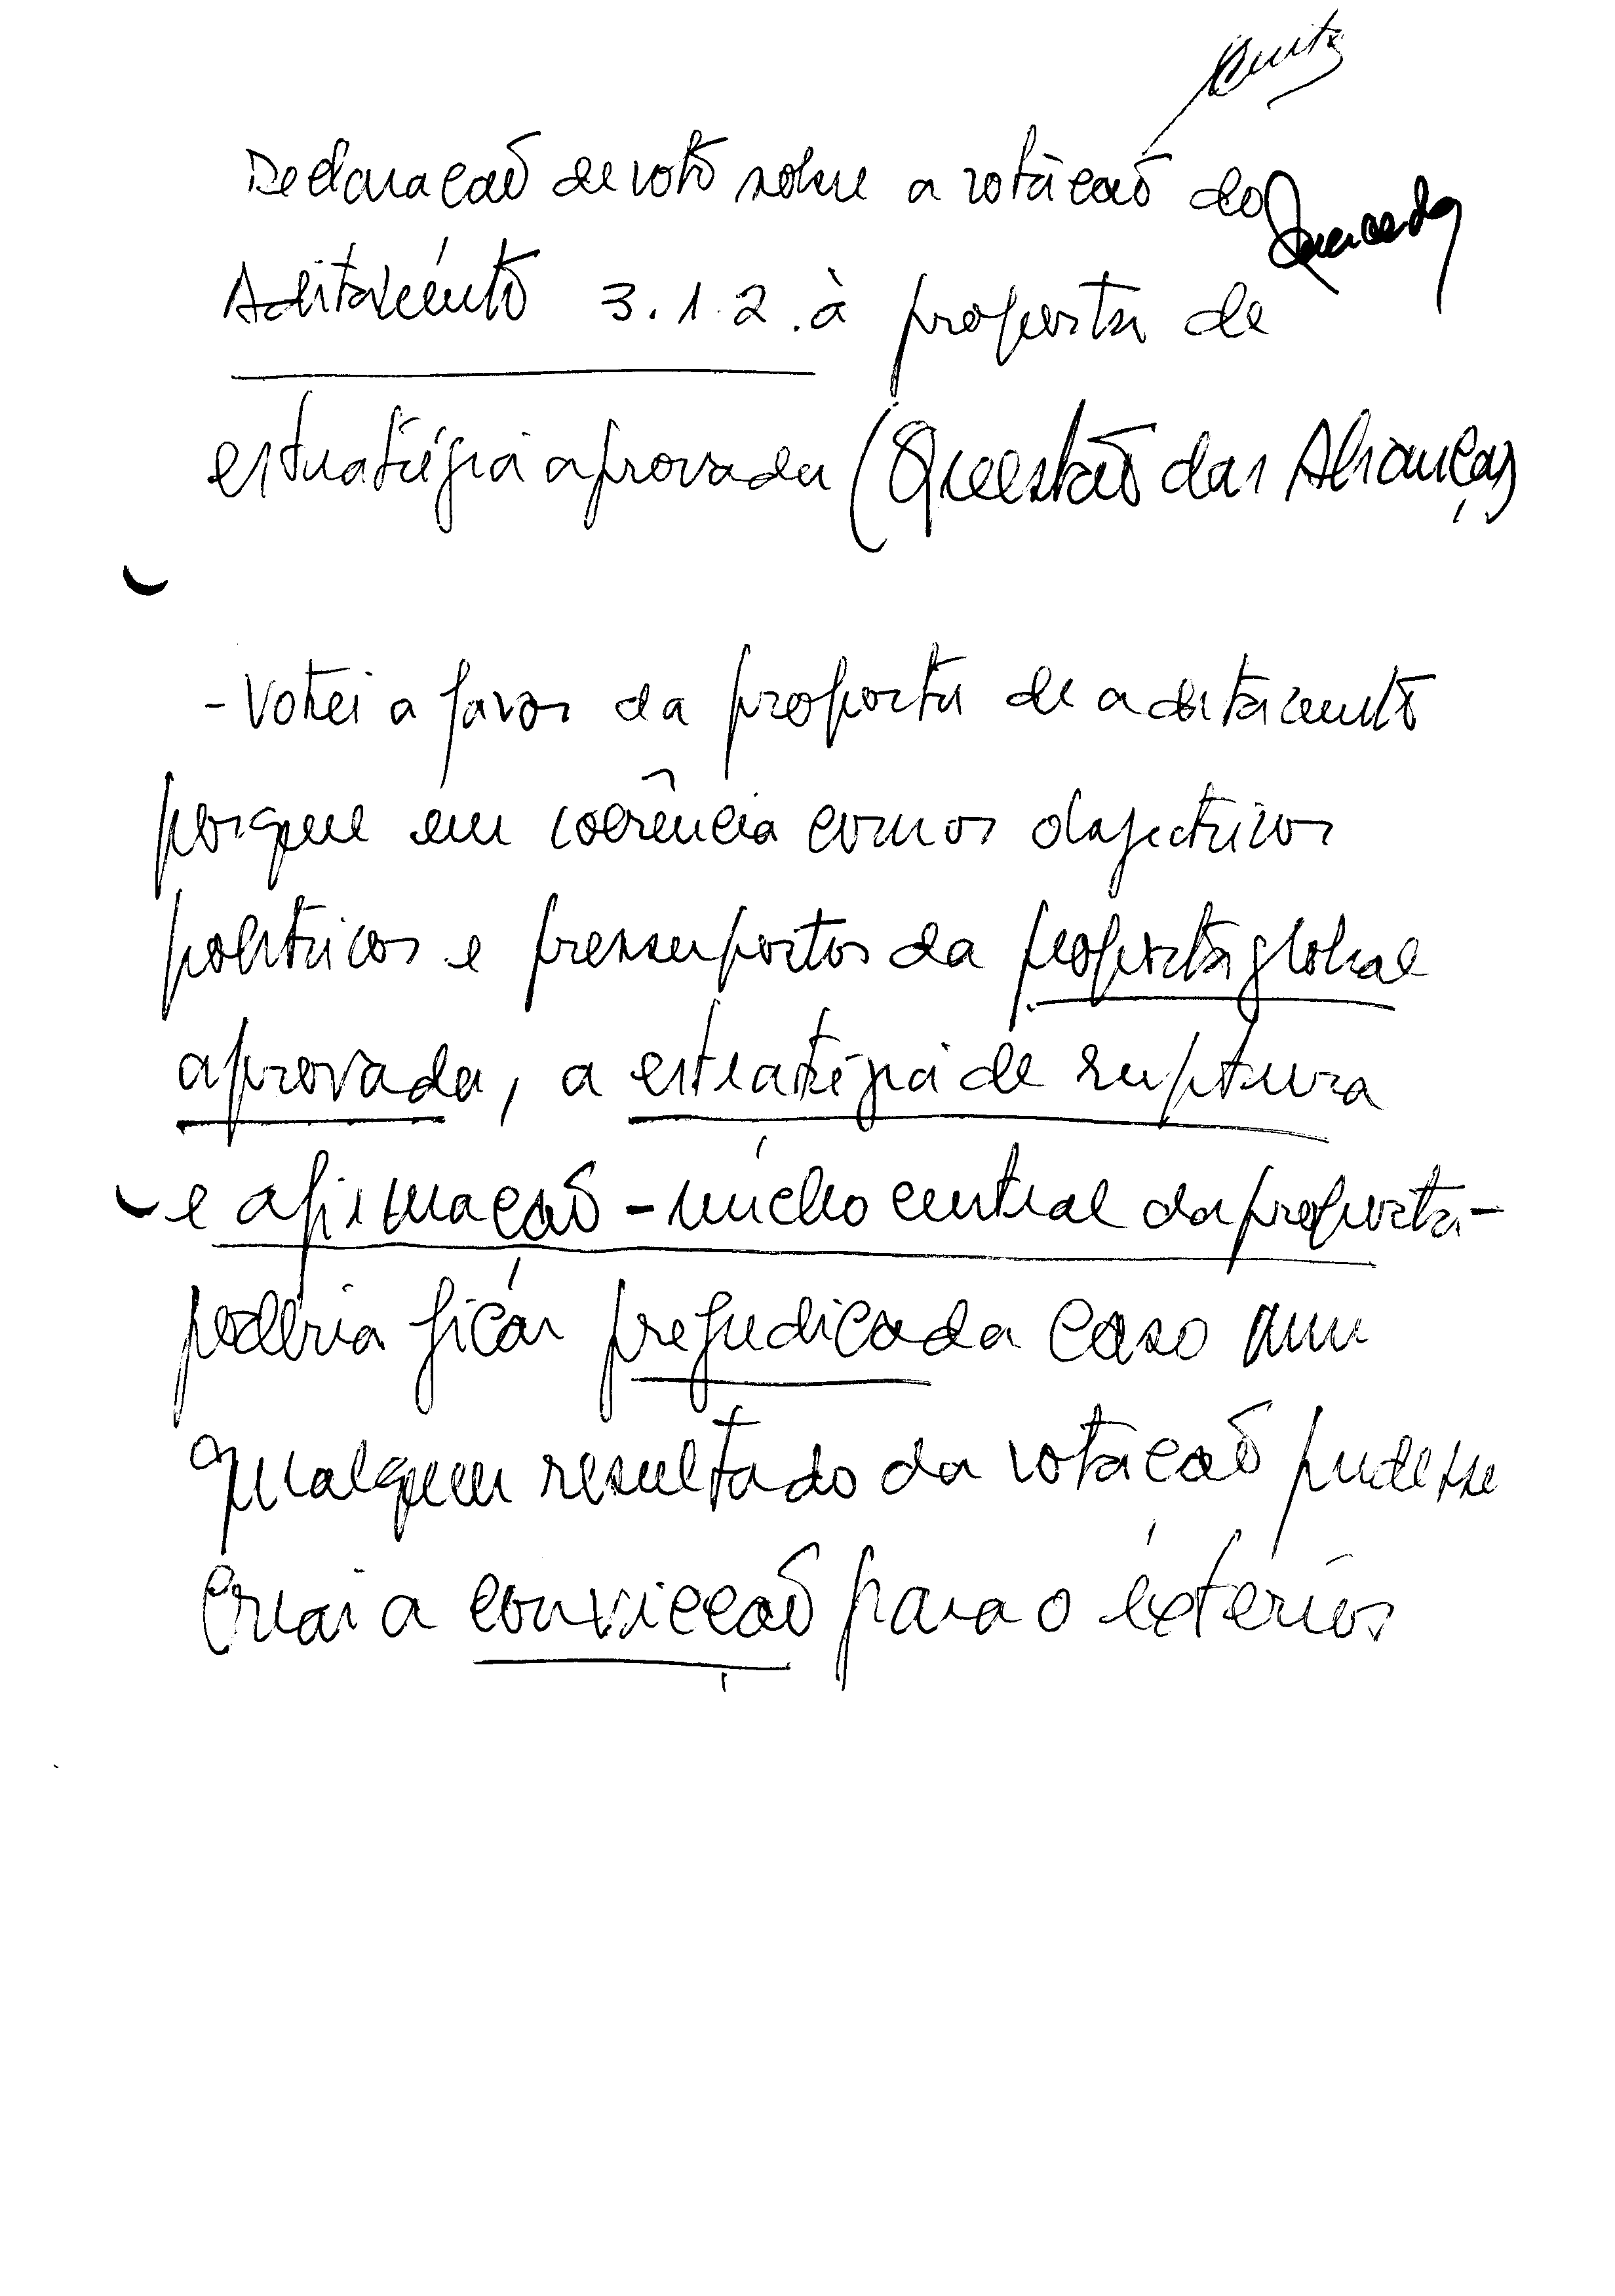 Declaração de voto sobre a votação do
Aditamento 3.1.2. à proposta de
estratégia aprovada (Questão das Alianças)
- Votei a favor da proposta de aditamento
porque em coerência com os objectivos
políticos e pressupostos da proposta global
aprovada, a estratégia de ruptura
e afirmação - núcleo central da proposta -
poderia ficar prejudicada caso num
qualquer resultado da votação pudesse
criar a convicção para o exterior